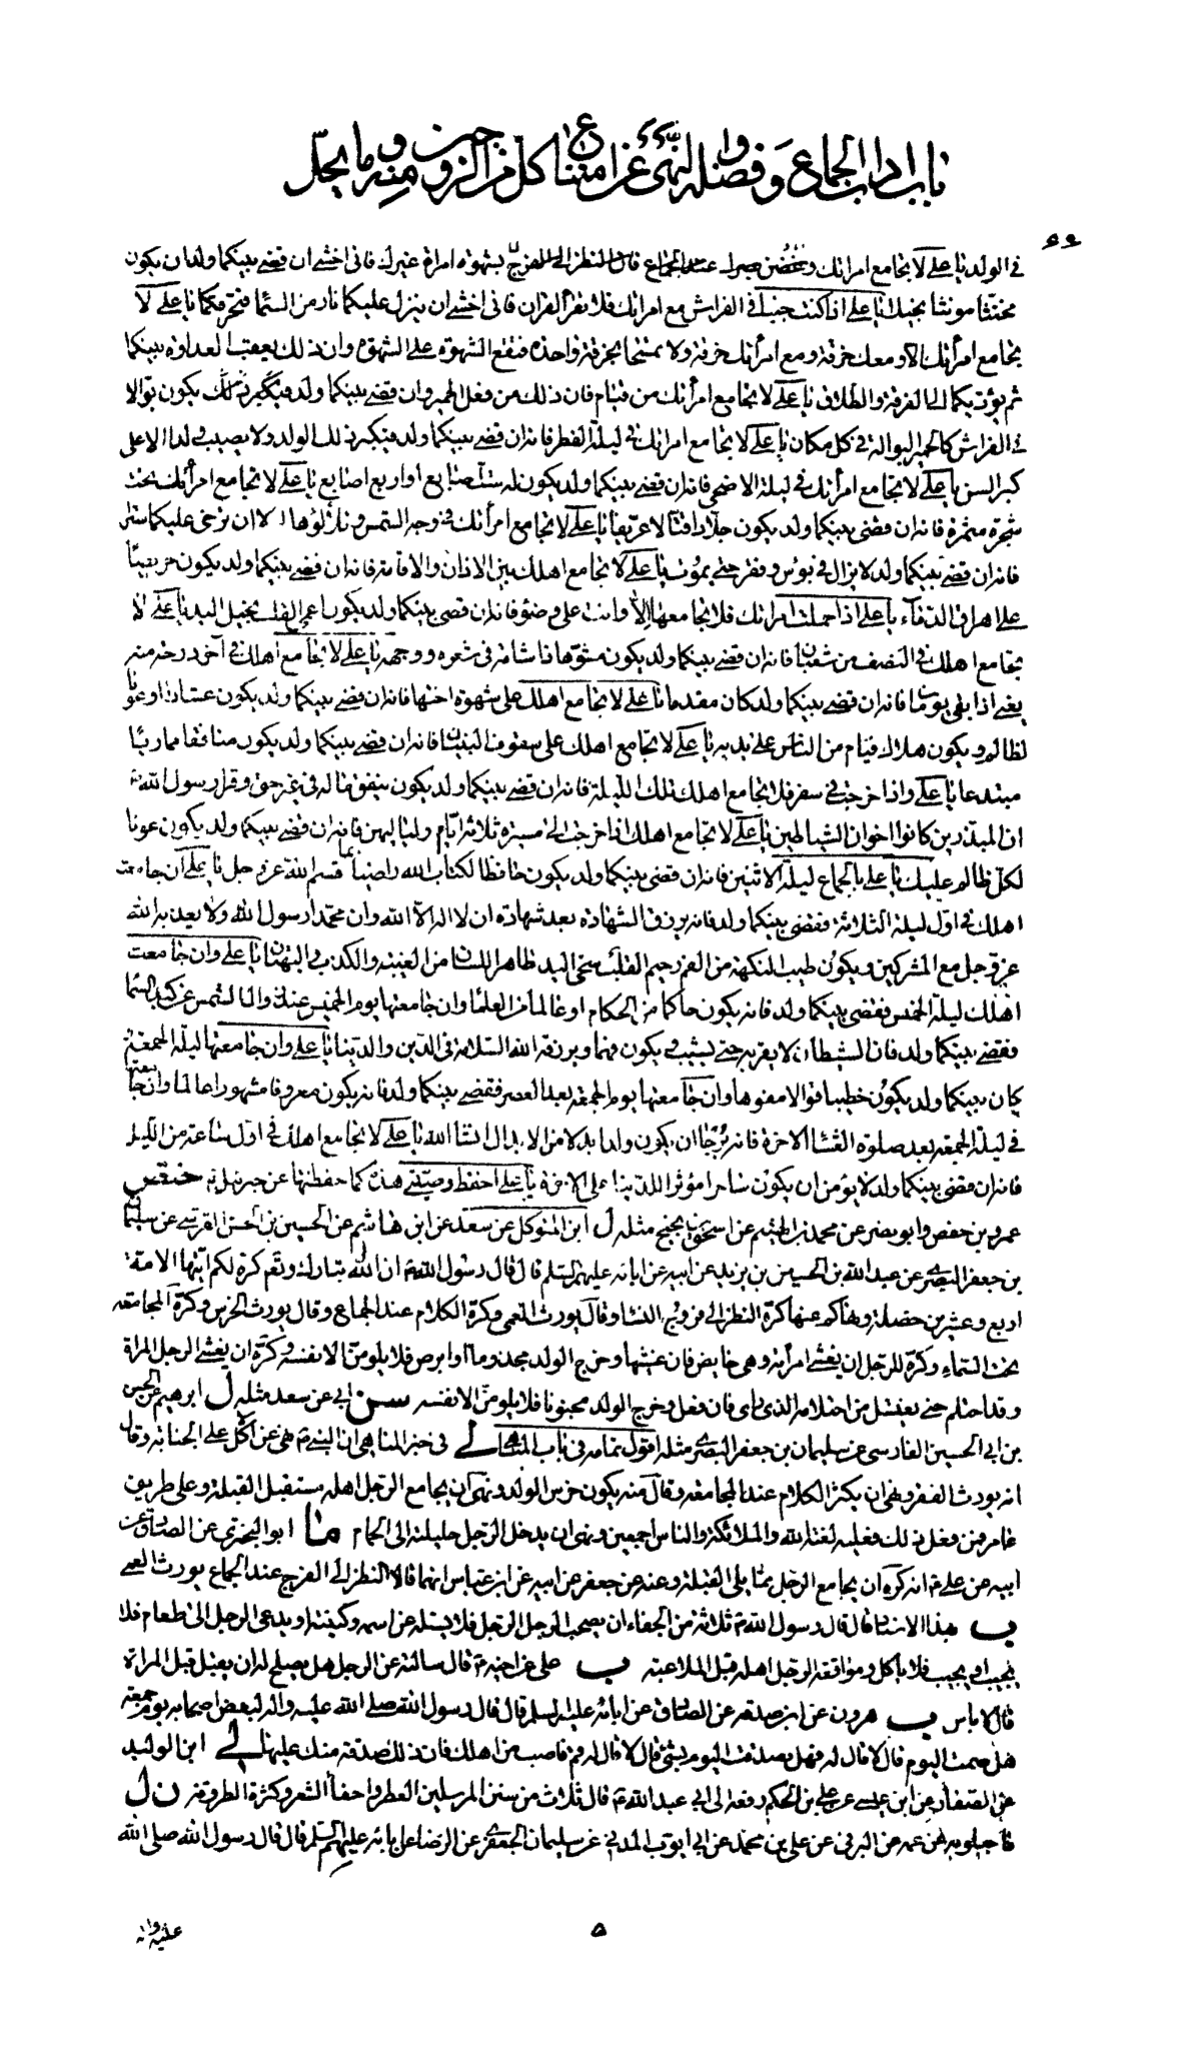 باب اداب الجماع وفضله والنهى عن امتناع كل من الزوجين ومنه وما يحل
۶۶
فى الولد يا على لا تجامع امراتك وغض بصرك عند الجماع فان النظر الى الفرج بشهوة امراة غيرك فانى اخشى ان قضى بينكما ولد ان يكون
مخنثا مونثا بخيلا يا على اذا كنت جنبا فى الفراش مع امراتك فلا تقرأ القران فانى اخشى ان ينزل عليكما نار من السماء فتحرقكما يا على لا
تجامع امرأتك الا ومعك خرقة ومع امرأتك خرقة ولا تمسحا بخرقة واحدة فتقع الشهوة على الشهوة وان ذلك يعقب العداوة بينكما
ثم يؤديكما الى الفرقة والطلاق يا على لا تجامع امرأتك من قيام فان ذلك من فعل الحمير وان قضى بينكما ولد يكون بوالا
فى الفراش كالحمير البوالة فى كل مكان يا على لا تجامع امراتك فى ليلة الفطر فانه ان قضى بينكما ولد فيكبر ذلك الولد ولا يصيب ولدا الا على
كبر السن يا على لا تجامع امرأتك فى ليلة الاضحى فانه ان قضى بينكما ولد يكون له ست اصابع او اربع اصابع يا على لا تجامع امرأتك تحت
شجرة مثمرة فانه ان قضى بينكما ولد يكون جلادا قتالا عريفا يا على لا تجامع امرأتك فى وجه الشمس وتلألؤها الا ان ترخى عليكما ستر
فانه ان قضى بينكما ولد لا يزال فى بؤس وفقر حتى يموت يا على لا تجامع اهلك بين الاذان والاقامة فانه ان قضى بينكما ولد يكون حريصا
على اهراق الدماء يا على اذا حملت امراتك فلا تجامعها الا وانت على وضوء فانه ان قضى بينكما ولد يكون اعمى القلب بخيل اليد يا على لا
تجامع اهلك فى النصف من شعبان فانه ان قضى بينكما ولد يكون مشوها ذا شامة فى شعره ووجهه يا على لا تجامع اهلك فى آخر درجة منه
يعنى اذا بقى يومان فانه ان قضى بينكما ولد كان مقدما يا على لا تجامع اهلك على شهوة اختها فانه ان قضى بينكما ولد يكون عشارا او عونا
لظالم ويكون هلاك فئام من الناس على يديه يا على لا تجامع اهلك على سقوف البنيان فانه ان قضى بينكما ولد يكون منافقا مماريا
مبتدعا يا على واذا خرجت فى سفر فلا تجامع اهلك تلك الليلة فانه ان قضى بينكما ولد يكون ينفق ماله فى غير حق وقرأ رسول الله
ان المبذرين كانوا اخوان الشياطين يا على لا تجامع اهلك اذا خرجت الى مسيرة ثلاثة ايام ولياليهن فانه ان قضى بينكما ولد يكون عونا
لكل ظالم عليك يا على بالجماع ليلة الاثنين فانه ان قضى بينكما ولد يكون حافظا لكتاب الله راضيا بما قسم الله عز وجل يا على ان جامعت
اهلك فى اول ليلة الثلاثاء فقضى بينكما ولد فانه يرزق الشهادة بعد شهادة ان لا اله الا الله وان محمدا رسول الله ولا يعذبه الله
عز وجل مع المشركين ويكون طيب النكهة من الفم رحيم القلب سخى اليد طاهر اللسان من الغيبة والكذب والبهتان يا على وان جامعت
اهلك ليلة الخميس فقضى بينكما ولد فانه يكون حاكما من الحكام او عالما من العلماء وان جامعتها يوم الخميس عند زوال الشمس عن كبد السماء
فقضى بينكما ولد فان الشيطان لا يقربه حتى يشيب ويكون فهما ويرزقه الله السلامة فى الدين والدنيا يا على وان جامعتها ليلة الجمعة
كان بينكما ولد يكون خطيبا قوالا مفوها وان جامعتها يوم الجمعة بعد العصر فقضى بينكما ولد فانه يكون معروفا مشهورا عالما وان جامعتها
فى ليلة الجمعة بعد صلوة العشاء الاخرة فانه يرجى ان يكون ولدا بدلا من الابدال انشا الله يا على لا تجامع اهلك فى اول ساعة من الليل
فانه ان قضى بينكما ولد لا يؤمن ان يكون ساحرا مؤثرا للدنيا على الاخرة يا على احفظ وصيتى هذه كما حفظتها عن جبرئيل
عمرو بن حفص وابو بصر عن محمد بن الهيثم عن اسحق بن نجيح مثله ل ابن المتوكل عن سعد عن ابن هاشم عن الحسين بن الحسن القرشى عن سليمان
بن جعفر البصرى عن عبد الله بن الحسين بن يزيد عن ابيه عن ابائه عليهم السلم قال قال رسول الله ان الله تبارك وتعالى كره لكم ايتها الامة
اربع وعشرين خصلة ونهاكم عنها كره النظر الى فروج النساء وقال يورث العمى وكره الكلام عند الجماع وقال يورث الخرس وكره المجامعة
تحت السماء وكره للرجل ان يغشى امرأته وهى حايض فان غشيها وخرج الولد مجذوما او ابرص فلا يلومن الا نفسه وكره ان يغشى الرجل المراة
وقد احتلم حتى يغتسل من احتلامه الذى راى فان فعل وخرج الولد مجنونا فلا يلومن الا نفسه سن ابى عن سعد مثله ل ابرهيم عن الحسين
بن ابى الحسين الفارسى عن سليمان بن جعفر البصرى مثله اقول تمامه فى باب المناهى لى فى خبر المناهى ان النبى نهى عن الاكل على الجنابة وقال
انه يورث الفقر ونهى ان يكثر الكلام عند المجامعة وقال منه يكون خرس الولد ونهى ان يجامع الرجل اهله مستقبل القبلة وعلى طريق
عامر فمن فعل ذلك فعليه لعنة الله والملائكة والناس اجمعين ونهى ان يدخل الرجل حليلته الى الحمام ما ابو البخترى عن الصادق عن
ابيه عن على انه كره ان يجامع الرجل مما يلى القبلة وعنه عن جعفر عن ابيه عن ابن عباس انهما قالا النظر الى الفرج عند الجماع يورث العمى
ب هذا الاسناد قال قال رسول الله ثلاثة من الجفاء ان يصحب الرجل الرجل فلا يسئله عن اسمه وكنيته او يدعى الرجل الى طعام فلا
يجيب او يجيب فلا ياكل ومواقعة الرجل اهله قبل الملاعبة ب على عن اخيه قال سالته عن الرجل هل يصلح له ان يقبل قبل المراة
قال لا باس ب هرون عن ابن صدقة عن الصادق عن ابائه عليهم السلم قال قال رسول الله صلى الله عليه واله لبعض اصحابه يوم جمعة
هل صمت اليوم قال لا قال له فهل تصدقت اليوم بشئ قال لا قال له قم فاصب من اهلك فان ذلك صدقة منك عليها لى ابن الوليد
عن الصفار عن ابن عيسى عن على بن الحكم رفعه الى ابى عبد الله قال ثلاث من سنن المرسلين العطر واحفاء الشعر وكثرة الطروقة ن ل
ماجيلويه عن عمه عن البرقى عن على بن محمد عن ابى ايوب المدنى عن سليمان الجعفرى عن الرضا عن ابائه عليهم السلم قال قال رسول الله صلى الله
۵
عليه واله